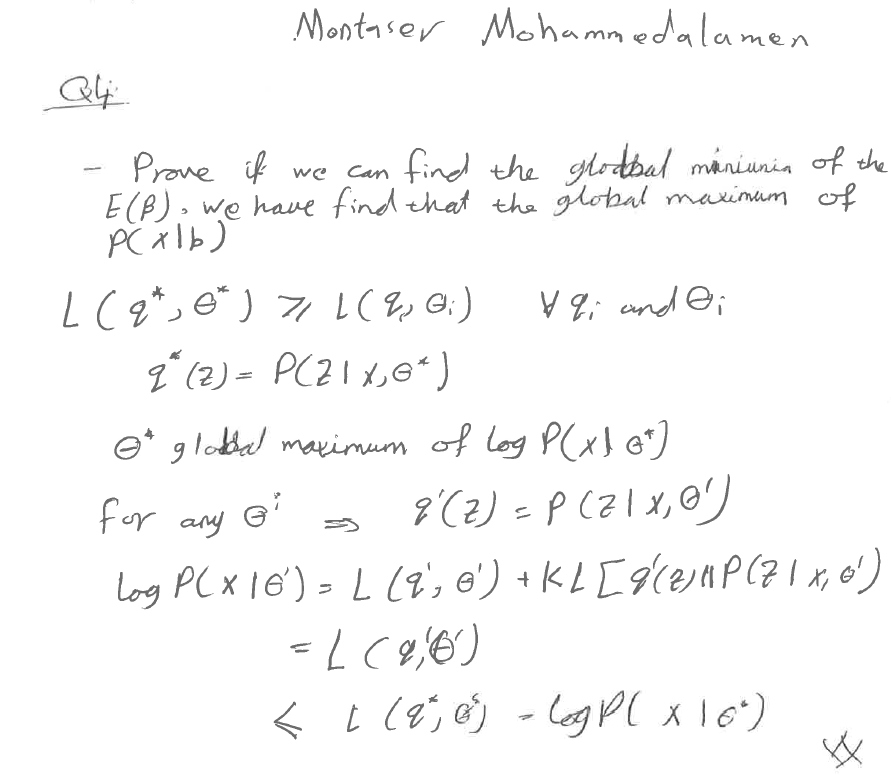 Montaser Mohammedalamen
Q4:
- Prove if we can find the global of the
E(β), we have find that the global maximum of
P(x|b)
L(q*, θ*) ⩾ L(q, θi) ∀ qi and θi
q*(z) = P(z|x,θ*)
θ* global maximum of log P(x|θ*)
for any θ' ⇒ q'(z) = P(z|x,θ')
log P(x|θ') = L(q', θ') + KL[q'(z)||P(z|x,θ')
= L(q',θ')
⩽ L(q*, θ*) = log P(x|θ*)